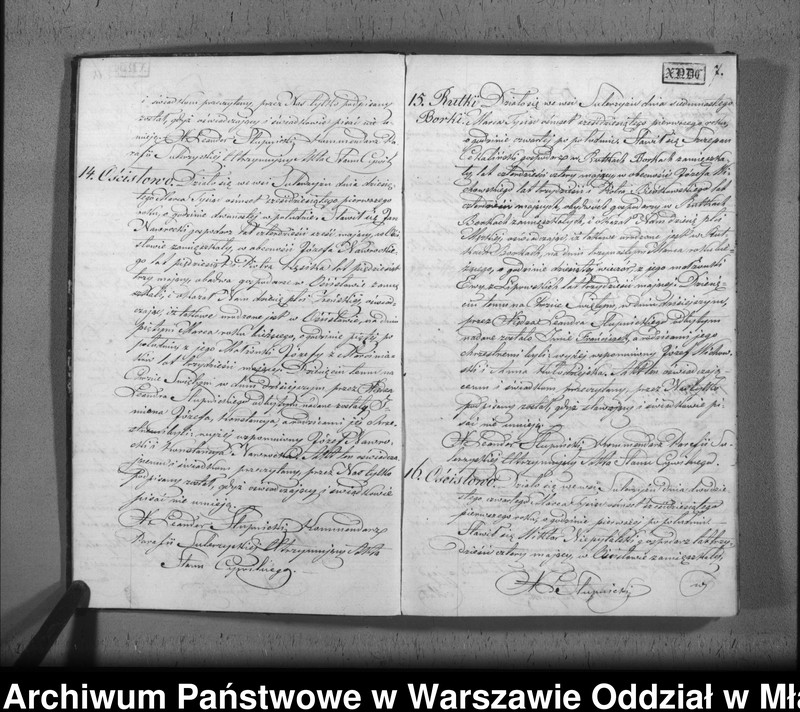 i świadkom przeczytany, przez Nas tylko podpisany
został, gdyż oświadczający i świadkowie pisać nie u-
mieją. X Leander Słupnicki Kommendarz Pa-
rafii Sulerzyskiej Utrzymujący Akta Stanu Cywil:
14. Ościsłowo Działo się we wsi Sulerzyżu dnia
Marca Tysiąc ośmset sześćdziesiątego pierwszego
roku, o godzinie dwunastej w południe. Stawił się Jan
Nawrocki gospodarz lat czterdzieści sześć mający, w Ości-
słowie zamieszkały, w obecności Józefa Nawrockie-
go lat pięćdziesiąt i Piotra lat pięćdziesiąt
trzy mający, obadwa gospodarze w Ościsłowie zamie-
szkali, i okazał Nam dziécię płci Żeńskiej, oświad-
czając, iż takowe urodzone jest w Ościsłowie, na dniu
piętym Marca roku bieżącego, o godzinie piątej po
południu z jego Małżonki Józefy z
lat trzydzieści mającej. Dziécięciu temu na
Chrzcie Świętym w dniu dzisiejszym przez Xiędza
Leandra Słupnickiego odbytym nadane zostały I-
miona Józefa, Konstancya, a rodzicami jej chrze-
stnemi byli, wyżej wspomniony Józef Nawroc-
ki i Konstancya Nawrocka. Akt ten oświadcza-
jącemu i świadkom przeczytany, przez Nas tylko
podpisany został, gdyż oświadczający i świadkowie
pisać nie umieją.
X Leander Słupnicki Kommendarz
Parafii Sulerzyskiej Utrzymujący Akta
Stanu Cywilnego.
XNDC 7.
15. Rutki Działo się we wsi Sulerzyżu dnia siedmnastego
Borki. Marca Tysiąc ośmset sześćdziesiątego pierwszego roku,
o godzinie czwartej po południu. Stawił się Szczepan
gospodarz w Rutkach Borkach zamieszka-
ły, lat czterdzieści cztery mający, w obecności Józefa Mi-
chowskiego lat trzydzieści i Piotra lat
czterdzieści mających, obydwóch gospodarzy w Rutkach
Borkach zamieszkałych, i okazał Nam dziécię płci
Męzkiej, oświadczając, iż takowe urodzone jest w Rut-
kach Borkach, na dniu trzynastym Marca roku bie-
żącego, o godzinie wieczór, z jego małżonki
Ewy z lat trzydzieści mającej. Dziécię-
ciu temu na Chrzcie Świętym, w dniu dzisiejszym,
przez Xiędza Leandra Słupnickiego odbytym
nadane zostało Imie Franciszek, a rodzicami jego
chrzestnemi byli wyżej wspomniony Józef Michow-
ski i Anna Akt ten oświadczają-
cemu i świadkom przeczytany, przez Nas tylko
podpisany został, gdyż stawający i świadkowie pi-
sać nie umieją.
X Leander Słupnicki Kommendarz Parafii Su-
lerzyskiej Utrzymujący Akta Stanu Cywilnego.
16. Ościsłowo. Działo się we wsi Sulerzyżu dnia dwudzie-
stego czwartego Marca Tysiąc ośmset sześćdziesiątego
pierwszego roku, o godzinie pierwszej po południu.
Stawił się gospodarz lat trzy-
dzieści cztery mający, w Ościsłowie zamieszkały,
X L Słupnicki
Archiwum Państwowe w Warszawie Oddział w Mła